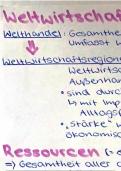 Weltwirtschaf
Welthandel: Gesamthe
Umfasst w
Weltwirtschaftsregion
Weltwirtsc
Außenhan
• sind durc
↳ mit Imp
Alltags(
• „stärke" w
ökonomisc
Ressourcen (→ e
=) Gesamtheit aller c